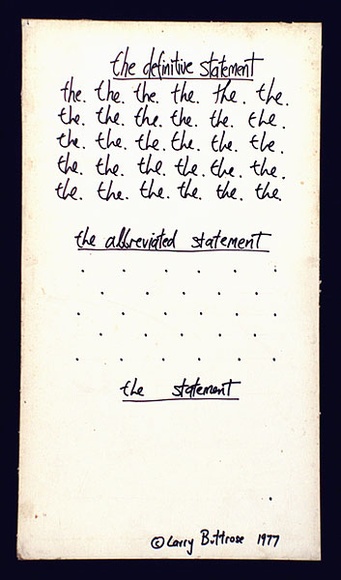 the definitive statement
the. the. the. the. the. the.
the. the. the. the. the. the.
the. the. the. the. the. the.
the. the. the. the. the. the.
the. the. the. the. the. the.
the abbreviated statement
. . . . . .
. . . . .
. . . . . .
. . . . .
. . . . . .
the statement
.
© Larry Buttrose 1977